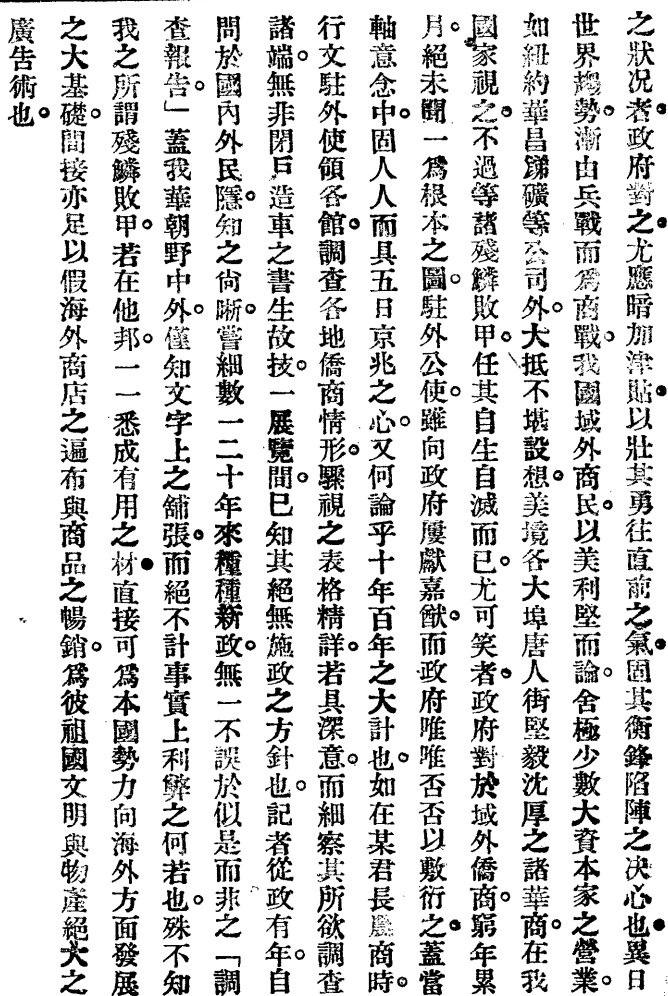 之狀况者政府對之尤應暗加津貼以壯其勇往直前之氣固其衡鋒陷陣之决心也異日
世界趨勢漸由兵戰而爲商戰。我國域外商民。以美利堅而論。舍極少數大資本家之營業。
如紐約華昌銻礦等公司外。大抵不堪設想。美境各大埠唐人街堅毅沈厚之諸華商。在我
國家視之。不過等諸殘鱗敗甲。任其自生自滅而已。尤可笑者。政府對於域外僑商。窮年累
月。絕未聞一爲根本之圖。駐外公使。雖向政府屢獻嘉猷。而政府唯唯否否以敷衍之。蓋當
軸意念中。固人人而具五日京兆之心。又何論乎十年百年之大計也。如在某君長農商時。
行文駐外使領各館。調查各地僑商情形。驟視之表格精詳。若具深意。而細察其所欲調查
諸端。無非閉戶造車之書生故技。一展覽間。已知其絕無施政之方針也。記者從政有年。自
問於國內外民隱。知之尙晰。嘗細數一二十年來種種新政。無一不誤於似是而非之「調
查報告」蓋我華朝野中外。僅知文字上之舖張。而絕不計事實上利弊之何若也。殊不知
我之所謂殘鱗敗甲。若在他邦。一一悉成有用之材。直接可爲本國勢力向海外方面發展
之大基礎。間接亦足以假海外商店之遍布與商品之暢銷。爲彼祖國文明與物產絕大之
廣告術也。